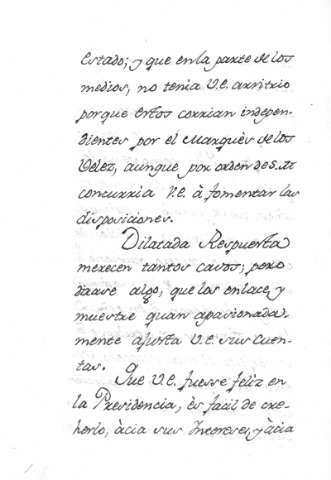 Estado; y que en la parte de los
medios, no tenia V.E. arvitrio
porque estos corrian indepen-
dientes por el Marquès de los
Velez, aunque por orden de S.M
concurria V.E. à fomentar las
disposiciones.
Dilatada Respuesta
merecen tantos cavos; pero
dirase algo, que los enlace, y
muestre quan apasionada-
mente ajusta V.E. sus cuen-
tas.
Que V.E. fuesse feliz en
la Presidencia, és facil de cre-
herlo, àcia sus Intereses, y àcia